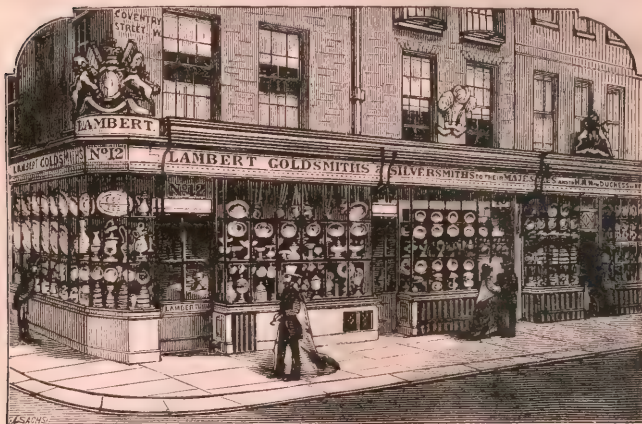 COVENTRY
STREET W.
LAMBERT
LAMBERT GOLDSMITHS
Nº 12
LAMBERT GOLDSMITHS & SILVERSMITHS TO THEIR MAJES
H.R.H. THE DUCHESS
Nº 12
LAMBERT
SACHS